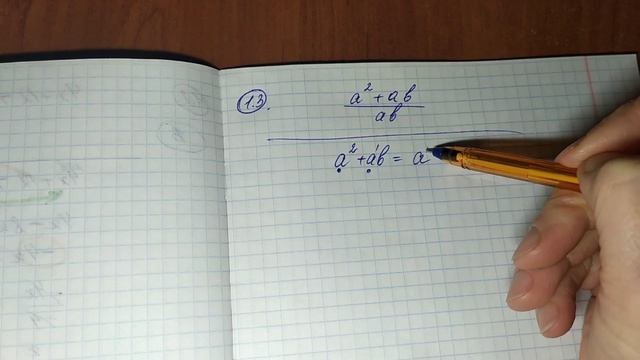 1.3.
a² + ab
ab
a² + ab = a